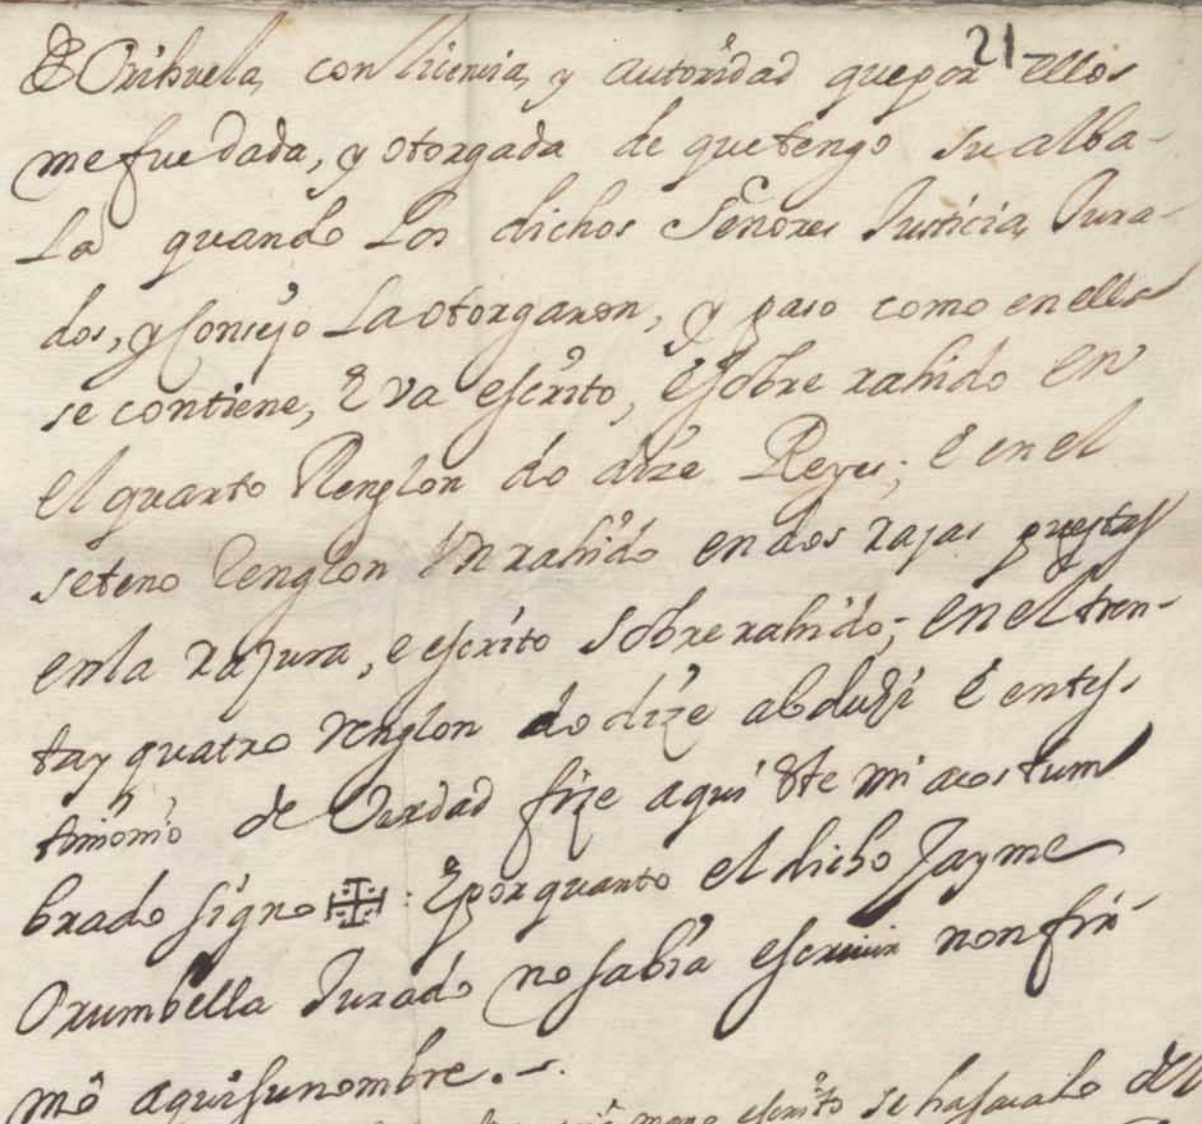 21
de Orihuela, con licencia, y autoridad que por ellos
me fue dada, y otorgada de que tengo su alba-
la quando los dichos Señores Justicia, Jura-
dos, y Consejo la otorgaron, y paso como en ella
se contiene, E va escrito, e sobre rahido en
el quarto Renglon do dize Reyes; E en el
seteno Renglon Un rahido en dos rajas puestas
en la rajura, e escrito sobre rahido; en el tren-
ta y quatro renglon do dize E en tes-
timonio de Verdad fize aqui este mi acostum
brado signo : E por quanto el dicho Jayme
Orumbella Jurado no sabia escriuir non fir-
mó aqui su nombre. -
mano escrito se ha sacado del